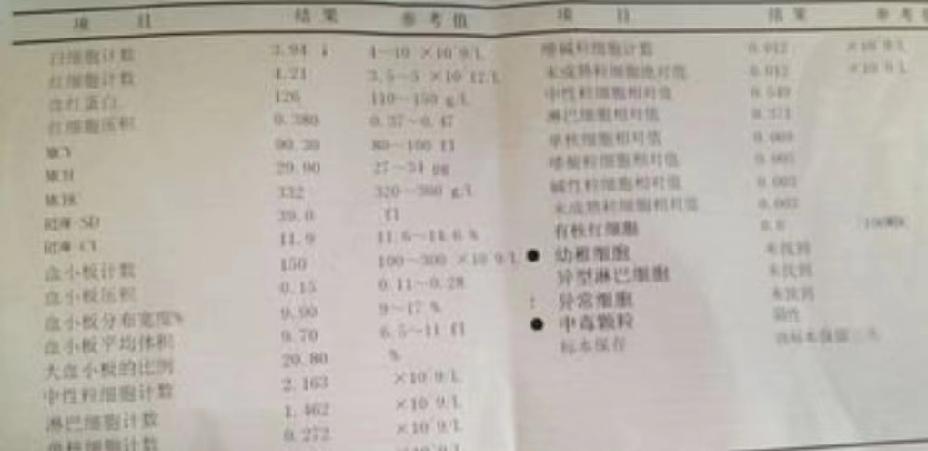 项 目 结果 参考值
白细胞计数 3.94 ↓ 4--10 ×10^9/L
红细胞计数 4.21 3.5--5 ×10^12/L
血红蛋白 126 110--150 g/L
红细胞压积 0.380 0.37--0.47
MCV 90.30 80--100 fl
MCH 29.90 27--34 pg
MCHC 332 320--360 g/L
RDW-SD 39.0 fl
RDW-CV 11.9 11.6--14.6 %
血小板计数 150 100--300 ×10^9/L
血小板压积 0.15 0.11--0.28
血小板分布宽度% 9.90 9--17 %
血小板平均体积 9.70 6.5--11 fl
大血小板的比例 20.80 %
中性粒细胞计数 2.163 ×10^9/L
淋巴细胞计数 1.462 ×10^9/L
单核细胞计数 0.272 ×10^9/L
项 目 结果 参考
嗜碱粒细胞计数 0.012 ×10^9/L
未成熟粒细胞绝对值 0.012 ×10^9/L
中性粒细胞相对值 0.549
淋巴细胞相对值 0.371
单核细胞相对值
嗜酸粒细胞相对值
碱性粒细胞相对值 0.003
未成熟粒细胞相对值 0.003
有核红细胞 0.0
● 幼稚细胞 未找到
异型淋巴细胞 未找到
异常细胞 未找到
● 中毒颗粒 阴性
标本保存